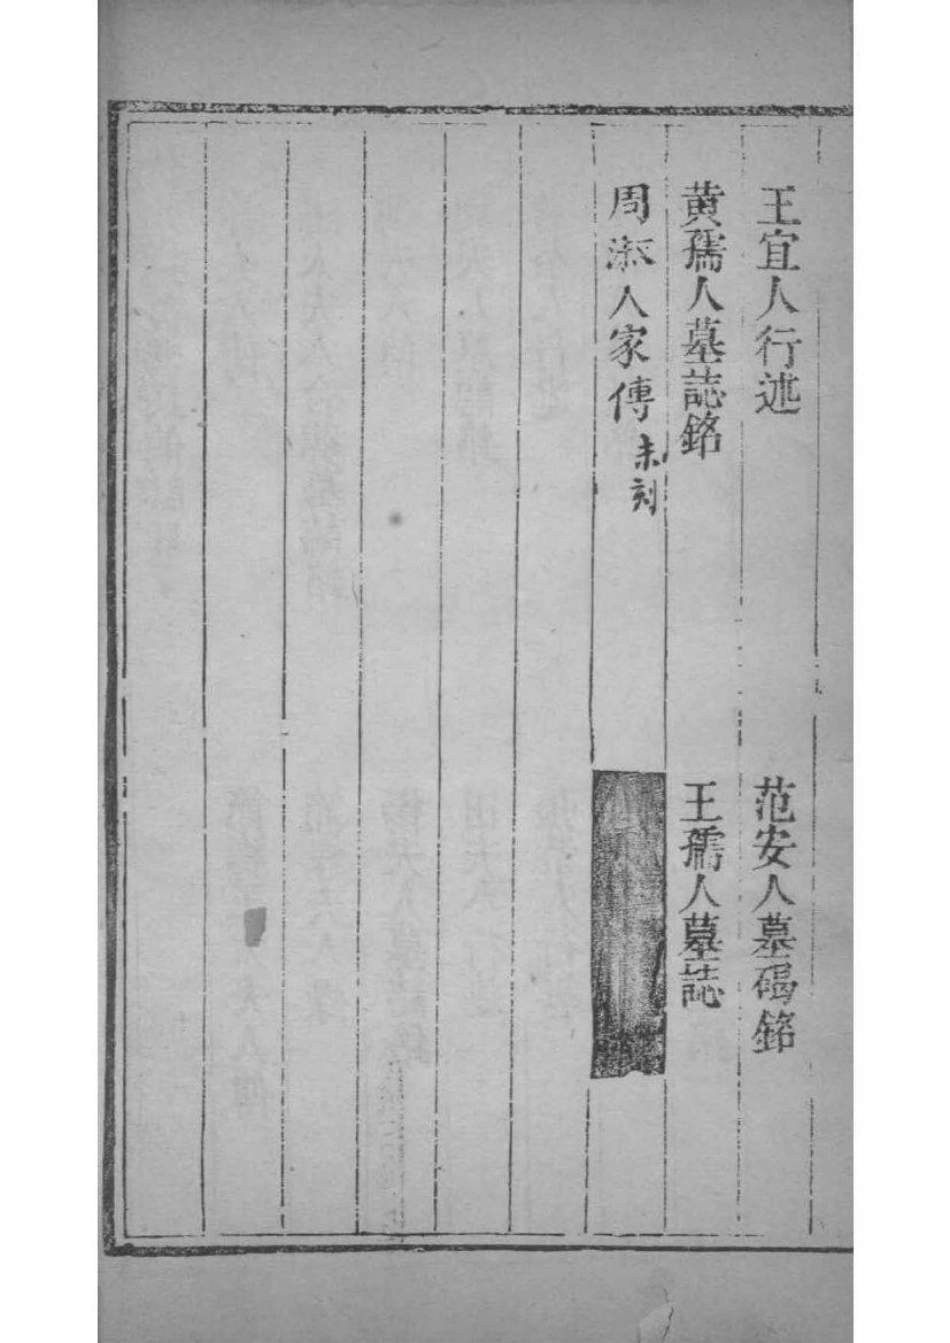 王宜人行述
范安人墓碣銘
黄孺人墓誌銘
王孺人墓誌
周淑人家傳 未刻